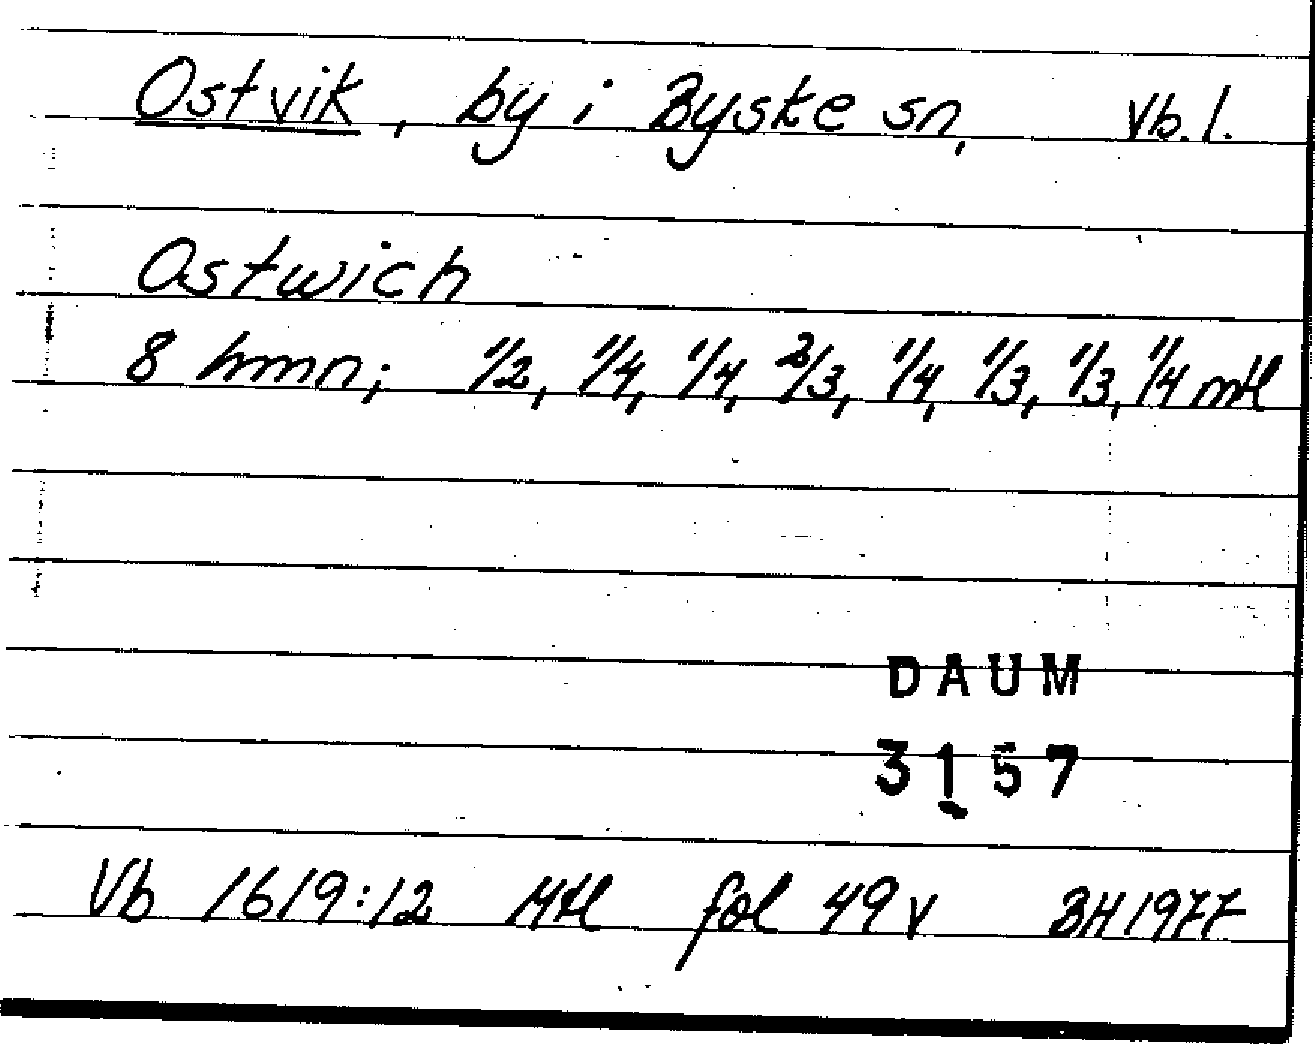 Ostvik, by i Byske sn, Vb. l.
Ostwich
8 hmn; 1/2, 1/4, 1/4, 2/3, 1/4, 1/3, 1/3, 1/4 mtl
DAUM
3157
Vb 1619:12 Mtl fol 49 v BH 1977